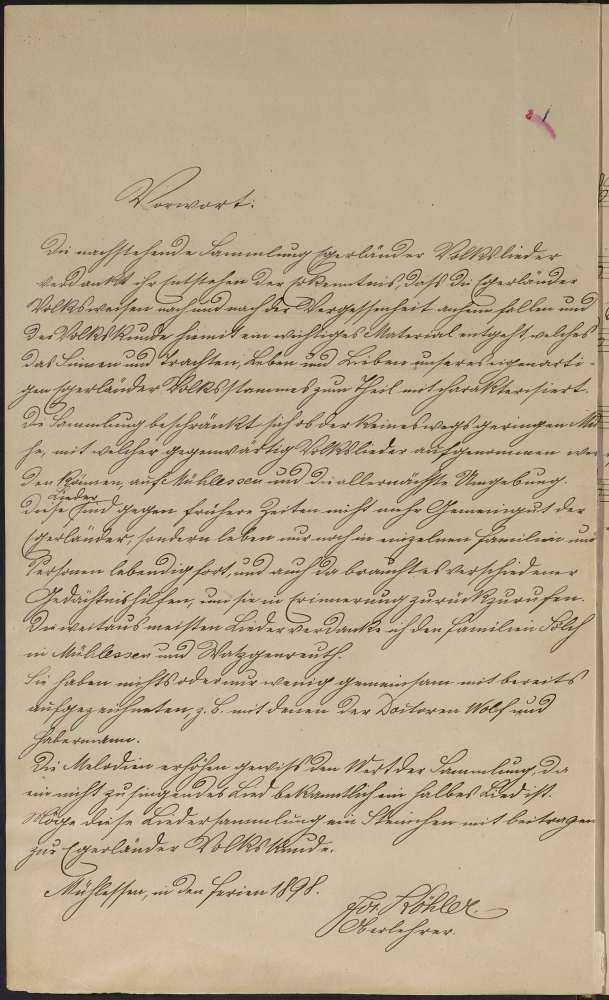 Vorwort.
Die nachstehende Sammlung Egerländer Volkslieder
verdankt ihr Entstehen der Erkenntnis, daß die Egerländer
Volksweisen nach und nach der Vergessenheit anheimfallen und
der Volkskunde hiemit ein wichtiges Material entgeht, welches
das Sinnen und Trachten, Leben und Lieben unseres eigenarti-
gen Egerländer Volksstammes zum Theil mitcharakterisiert.
Die Sammlung beschränkt sich ob der keineswegs geringen Mü-
he, mit welcher gegenwärtig Volkslieder aufgenommen wer-
den können, auf Mühlessen und die allernächste Umgebung.
Lieder
Diese sind gegen frühere Zeiten nicht mehr Gemeingut der
Egerländer, sondern leben nur noch in einzelnen Familien und
Personen lebendig fort, und auch da braucht es verschiedener
Gedächtnishilfen, um sie in Erinnerung zurückzurufen.
Die weitaus meisten Lieder verdanke ich den Familien Sölch
in Mühlessen und Watzgenreuth.
Sie haben nichts oder nur wenig gemeinsam mit bereits
aufgezeichneten, z. B. mit denen der Doctoren Wolf und
Habermann.
Die Melodien erhöhen gewiß den Wert der Sammlung, da
ein nicht zu singendes Lied bekanntlich ein halbes Lied ist.
Möge diese Liedersammlung ein Steinchen mit beitragen
zur Egerländer Volkskunde.
Mühlessen, in den Ferien 1898.
Jos. Köhler
Oberlehrer.